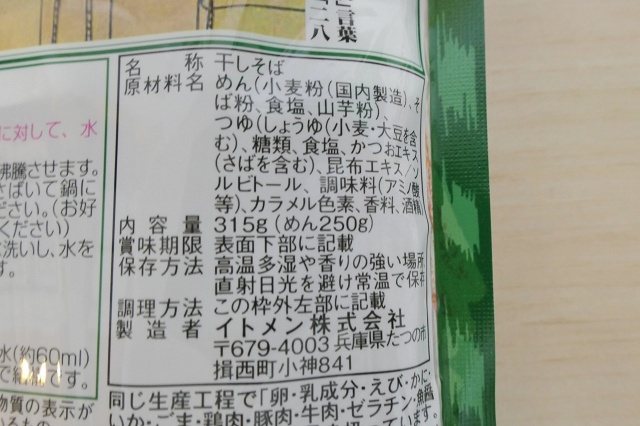 言葉
二八
名称 干しそば
原材料名 めん(小麦粉(国内製造)、そ
ば粉、食塩、山芋粉)、
つゆ(しょうゆ(小麦・大豆を含
む)、糖類、食塩、かつおエキス
(さばを含む)、昆布エキス/ソ
ルビトール、調味料(アミノ酸
等)、カラメル色素、香料、酒精)
内容量 315g(めん250g)
賞味期限 表面下部に記載
保存方法 高温多湿や香りの強い場所、
直射日光を避け常温で保存
調理方法 この枠外左部に記載
製造者 イトメン株式会社
〒679-4003 兵庫県たつの市
揖西町小神841
同じ生産工程で「卵・乳成分・えび・かに・
いか・ごま・鶏肉・豚肉・牛肉・ゼラチン・魚醤
に対して、水
沸騰させます。
さばいて鍋に
ださい。(お好
ください)
洗いし、水を
す。
水(約60ml)
物質の表示が